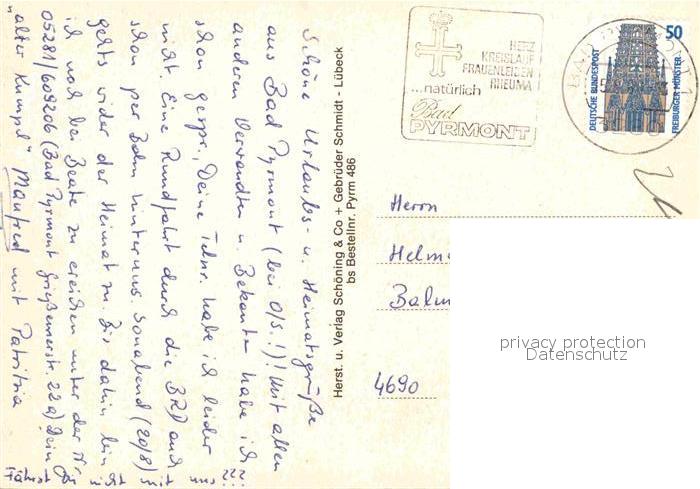 Schöne Urlaubs- u. Heimatgrüße
aus Bad Pyrmont (bei O/S.!)! Mit allen
anderen Verwandten u. Bekannten habe ich
schon gespr., Deine Telnr. habe ich leider
nicht. Eine Rundfahrt durch die BRD auch
schon per Bahn hinter uns, Sonnabend (20/8)
gehts wider der Heimat zu. Bis dahin bin
ich noch bei Beate zu ereichen unter der Nr.
05281/609206 (Bad Pyrmont 22a) Dein
"alter Kumpel" Manfred mit Patritzia
Fährst Du nicht mit uns???
Herst. u. Verlag Schöning & Co + Gebrüder Schmidt - Lübeck
bs Bestellnr. Pyrm 486
HERZ
KREISLAUF
FRAUENLEIDEN
RHEUMA
...natürlich
Bad
PYRMONT
50
DEUTSCHE BUNDESPOST
FREIBURGER MÜNSTER
Herrn
Helm
Balm
4690
privacy protection
Datenschutz